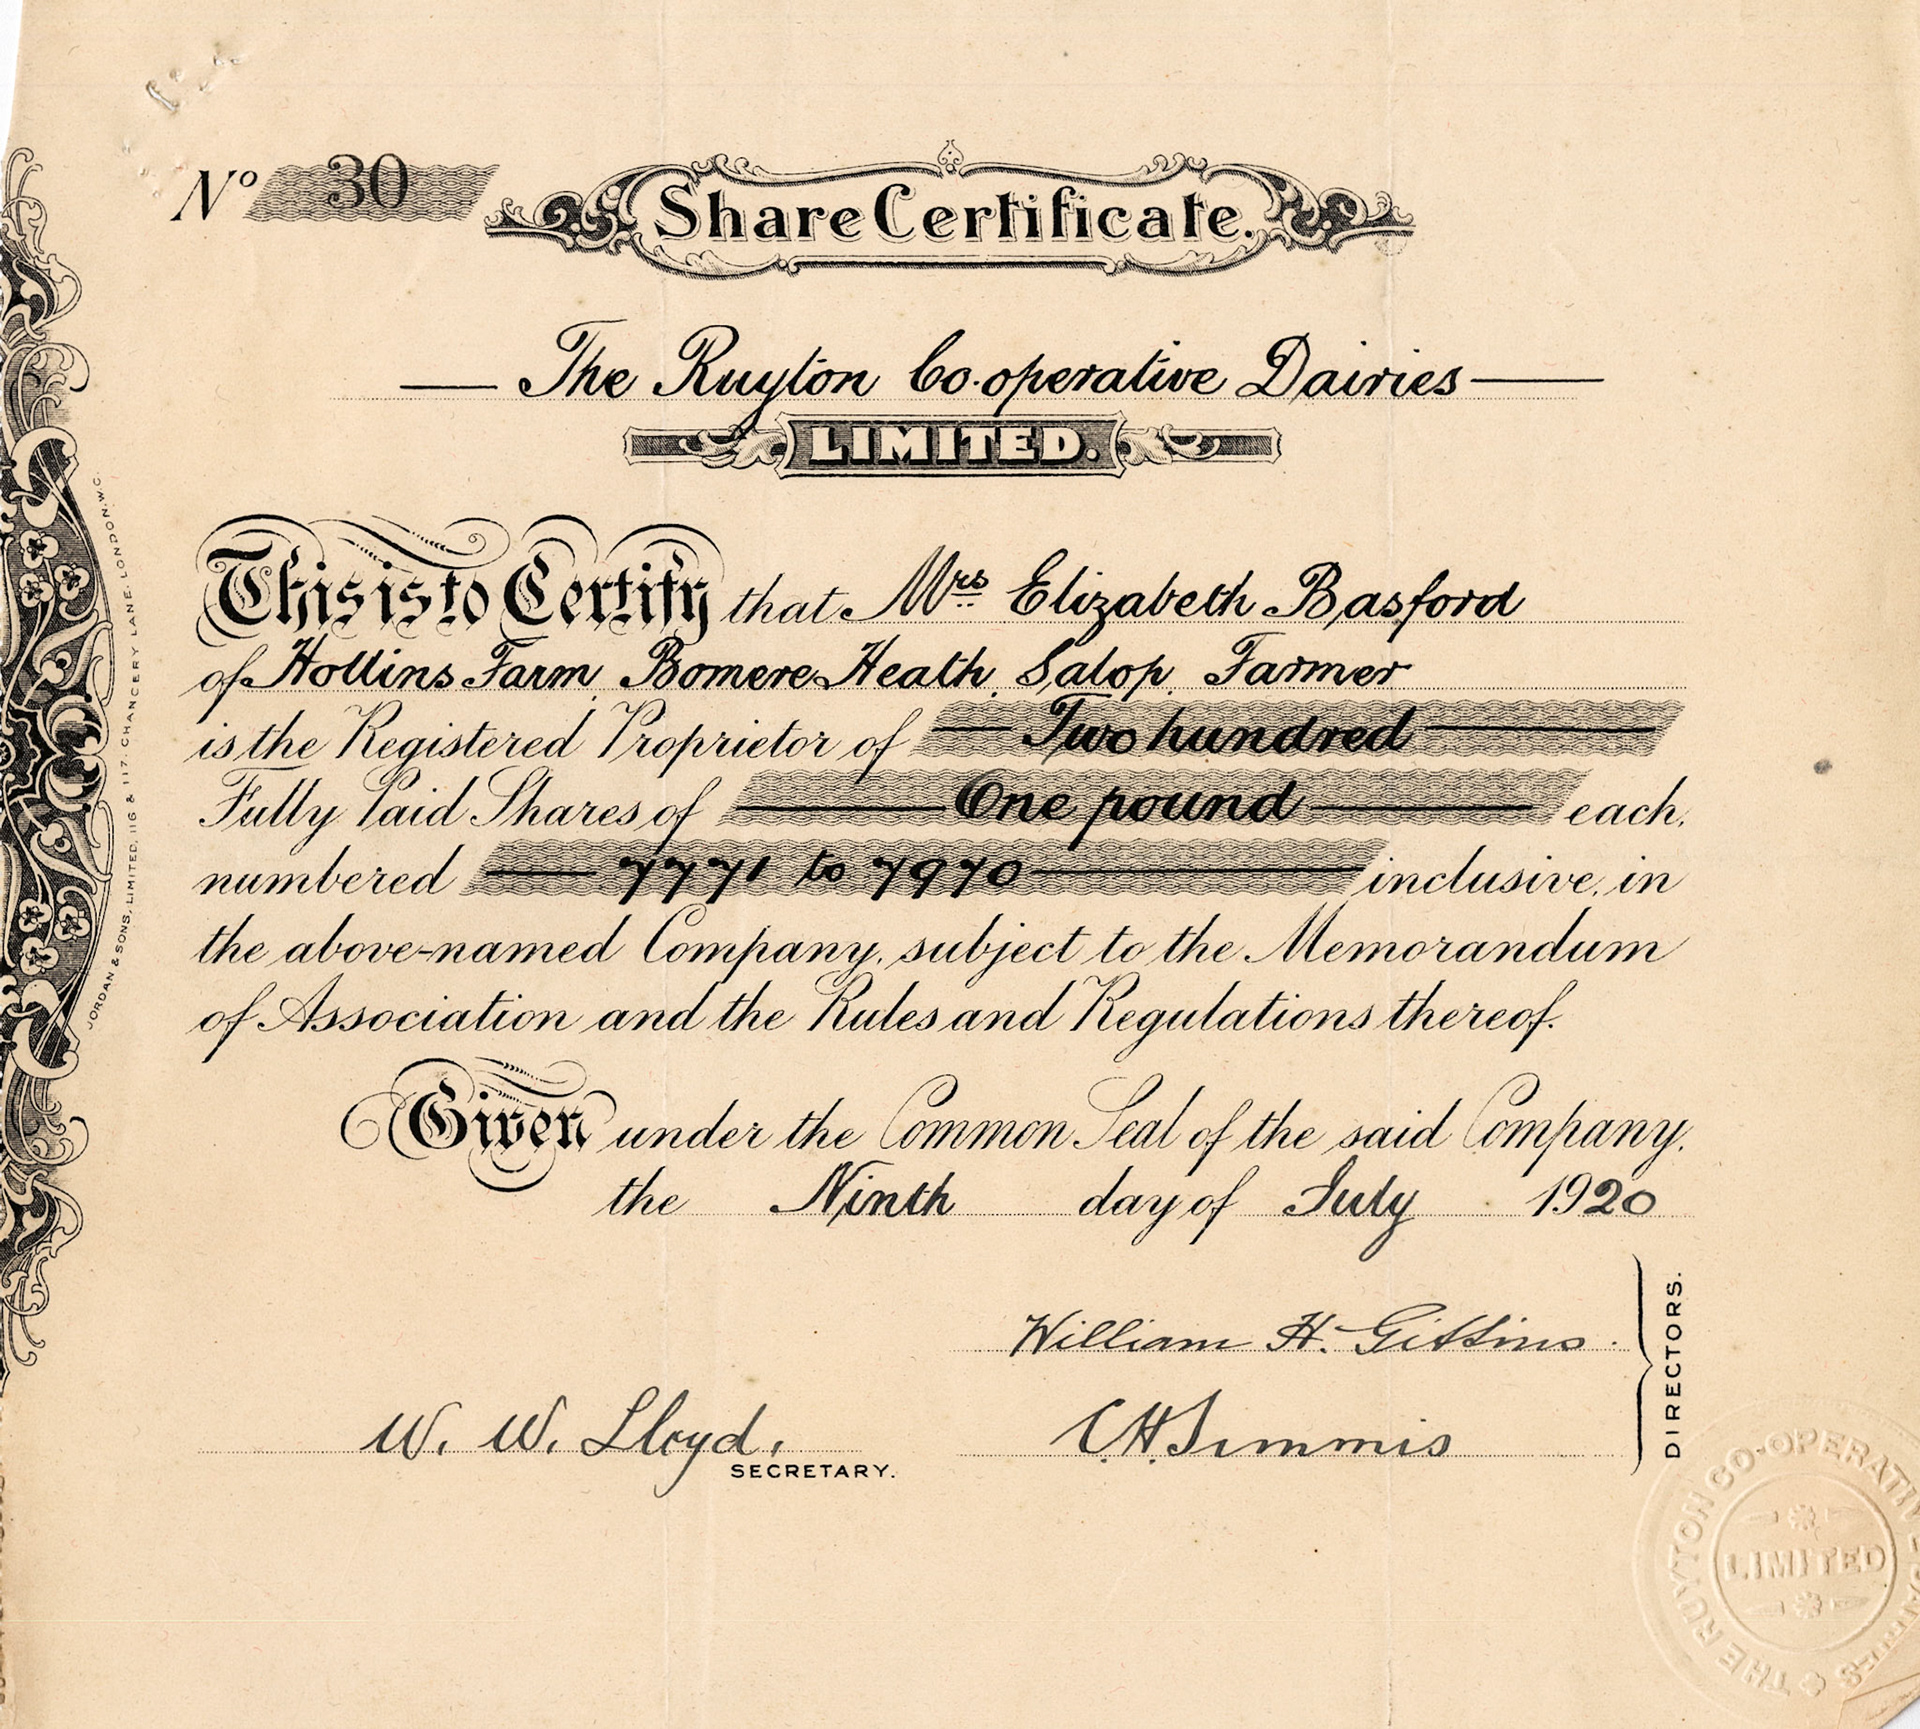 Nº 30
Share Certificate.
The Ruyton Co-operative Dairies
LIMITED.
This is to Certify that Mrs Elizabeth Basford
of Hollins Farm, Bomere Heath, Salop, Farmer
is the Registered Proprietor of Two hundred
Fully Paid Shares of One pound each,
numbered 7771 to 7970 inclusive, in
the above-named Company, subject to the Memorandum
of Association and the Rules and Regulations thereof.
Given under the Common Seal of the said Company,
the Ninth day of July 1920
William H. Gittins
C.H. Simmis
DIRECTORS.
W. W. Lloyd.
SECRETARY.
JORDAN & SONS, LIMITED, 116 & 117, CHANCERY LANE, LONDON, W.C.
THE RUYTON CO-OPERATIVE DAIRIES
LIMITED